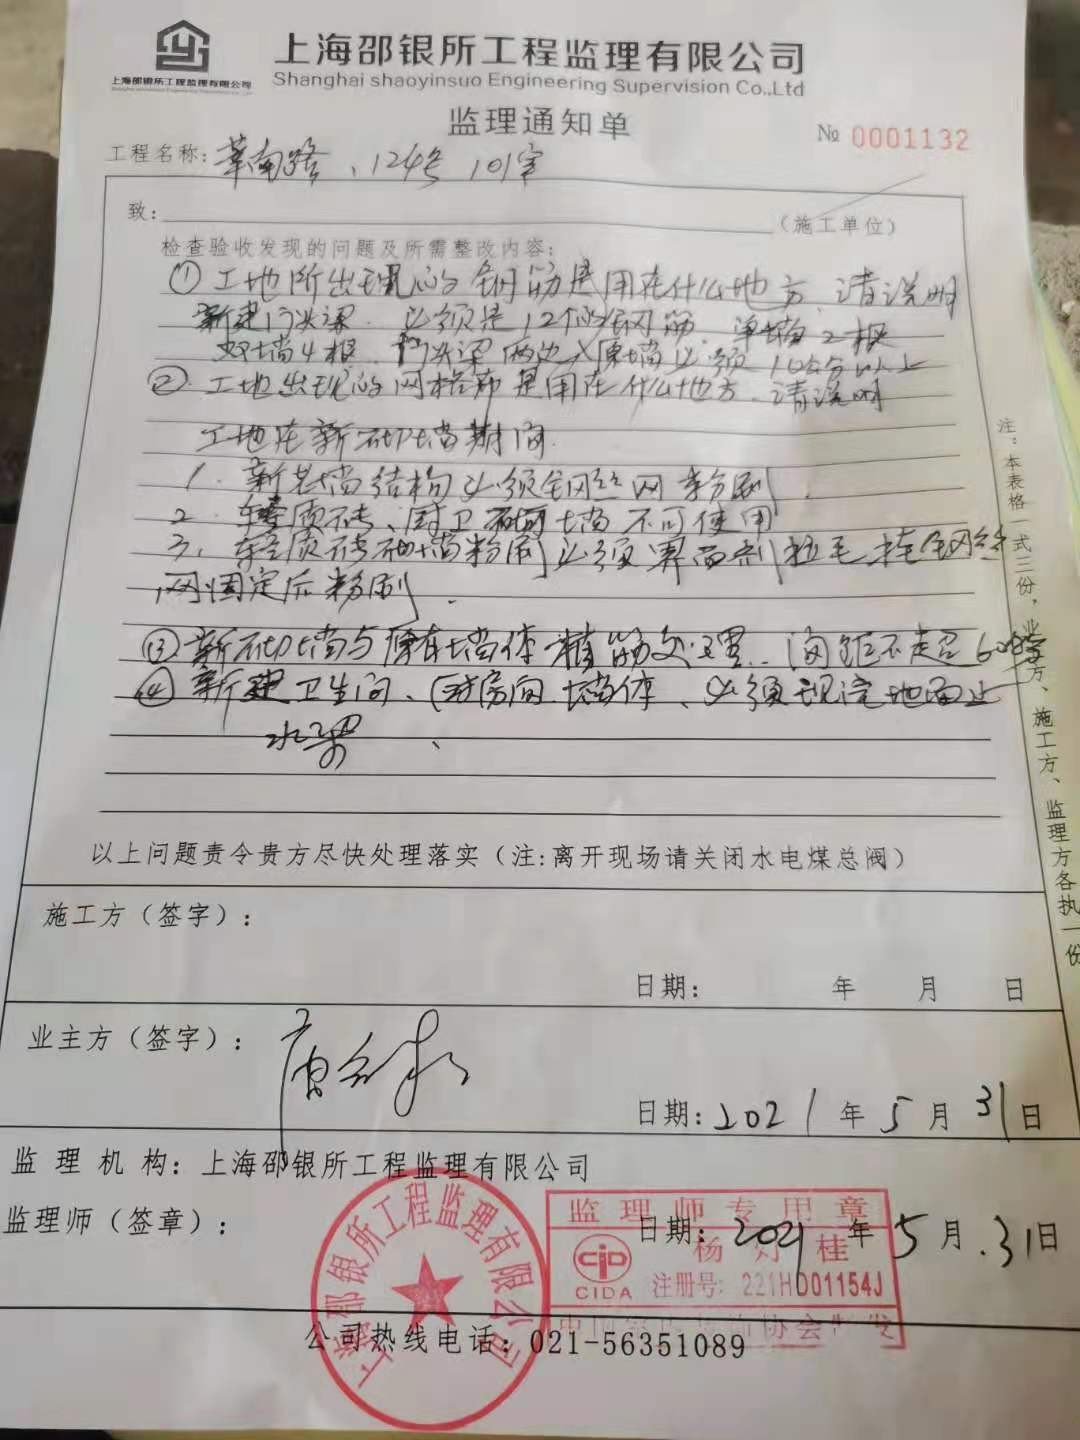 上海邵银所工程监理有限公司
上海邵银所工程监理有限公司
Shanghai shaoyinsuo Engineering Supervision Co.,Ltd
监理通知单
№ 0001132
工程名称: 莘南路、124号 101室
致: (施工单位)
检查验收发现的问题及所需整改内容:
① 工地所出现的钢筋是用在什么地方.请说明
新建门头梁. 必须是12个的钢筋. 单墙2根
双墙4根. 门头梁两边入原墙必须10公分以上
② 工地出现的网格布是用在什么地方.请说明
工地在新砌墙期间.
1. 新老墙结构必须钢丝网粉刷.
2. 轻质砖、厨卫砌墙不可使用
3. 轻质砖砌墙粉刷必须界面剂拉毛挂钢丝
网固定后粉刷.
③ 新砌墙与原有墙体植筋处理. 间距不超
④ 新建卫生间、房间墙体、必须现浇地面止
水梁、
以上问题责令贵方尽快处理落实(注:离开现场请关闭水电煤总阀)
注:本表格一式三份,业主方、施工方、监理方各执一份
施工方(签字):
日期: 年 月 日
业主方(签字):
日期:2021年5月31日
监理机构: 上海邵银所工程监理有限公司
监理师(签章):
日期: 2021年5月.31日
上海邵银所工程监理有限公司
监理师专用章
CIDA
杨 桂
注册号: 221HD01154J
公司热线电话: 021-56351089